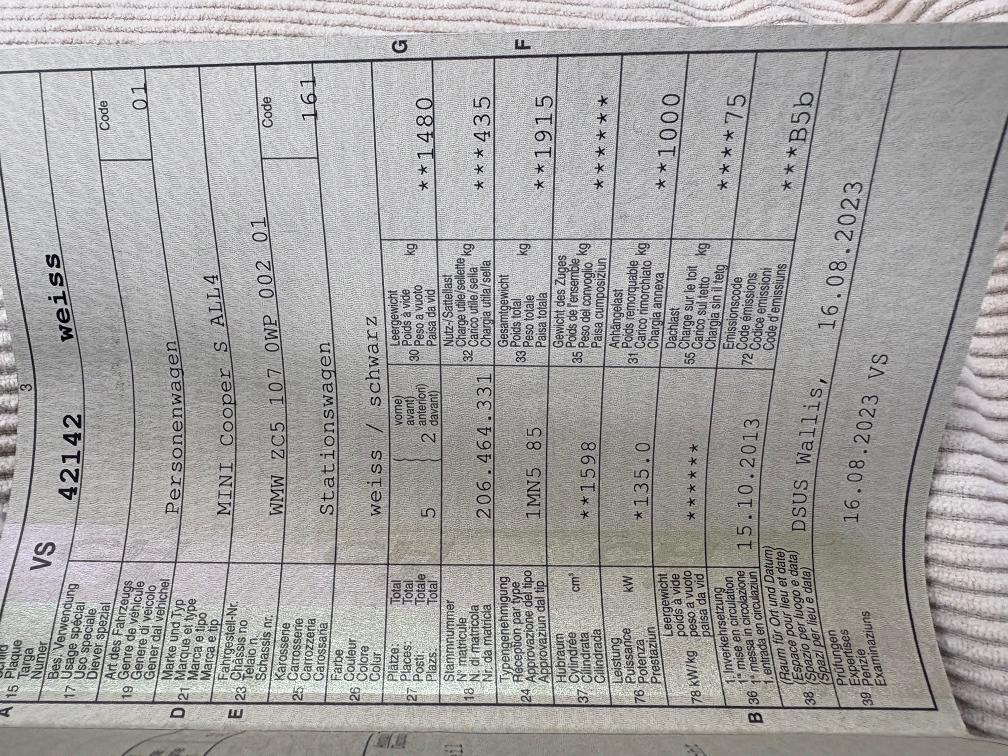 A
15 Plaque
Targa
Numer
VS 42142 weiss
3
Bes. Verwendung
17 Usage spécial
Uso speciale
Diever spezial
Art des Fahrzeugs
19 Genre de véhicule
Genere di veicolo
Gener dal vehichel
Personenwagen
Code
01
D
Marke und Typ
21 Marque et type
Marca e tipo
Marca e tip
MINI Cooper S ALL4
E
Fahrgestell-Nr.
23 Châssis no
Telaio n.
Schassis nr.
WMW ZC5 107 0WP 002 01
Karosserie
25 Carrosserie
Carrozzeria
Carossaria
Stationswagen
Code
161
Farbe
26 Couleur
Colore
Colur
weiss / schwarz
Plätze: Total
27 Places: Total
Posti: Totale
Plazs: Total
5
vorne)
avant)
anteriori)
davant)
2
Leergewicht
30 Poids à vide
Peso a vuoto
Paisa da vid
kg
**1480
G
Stammnummer
18 N° matricule
N. di matricola
Nr. da matricla
206.464.331
Nutz-/Sattellast
32 Charge utile/sellette
Carico utile/sella
Chargia utila/sella
kg
***435
Typengenehmigung
24 Réception par type
Approvazione del tipo
Approvaziun dal tip
1MN5 85
Gesamtgewicht
33 Poids total
Peso totale
Paisa totala
kg
**1915
F
Hubraum
37 Cylindrée
Cilindrata
Cilindrada
cm³
**1598
Gewicht des Zuges
35 Poids de l'ensemble
Peso del convoglio
Paisa cumposiziun
kg
******
Leistung
76 Puissance
Potenza
Prestaziun
kW
*135.0
Anhängelast
31 Poids remorquable
Carico rimorchiato
Chargia annexa
kg
**1000
Leergewicht
78 kW/kg poids à vide
peso a vuoto
paisa da vid
******
Dachlast
55 Charge sur le toit
Carico sul tetto
Chargia sin il tetg
kg
****75
B
1. Inverkehrsetzung
36 1re mise en circulation
1a messa in circolazione
1. entrada en circulaziun
15.10.2013
Emissionscode
72 Code émissions
Codice emissioni
Code d'emissiuns
***B5b
(Raum für Ort und Datum)
38 (Espace pour lieu et date)
(Spazio per luogo e data)
(Spazi per lieu e data)
DSUS Wallis, 16.08.2023
Prüfungen
39 Expertises
Perizie
Examinaziuns
16.08.2023 VS